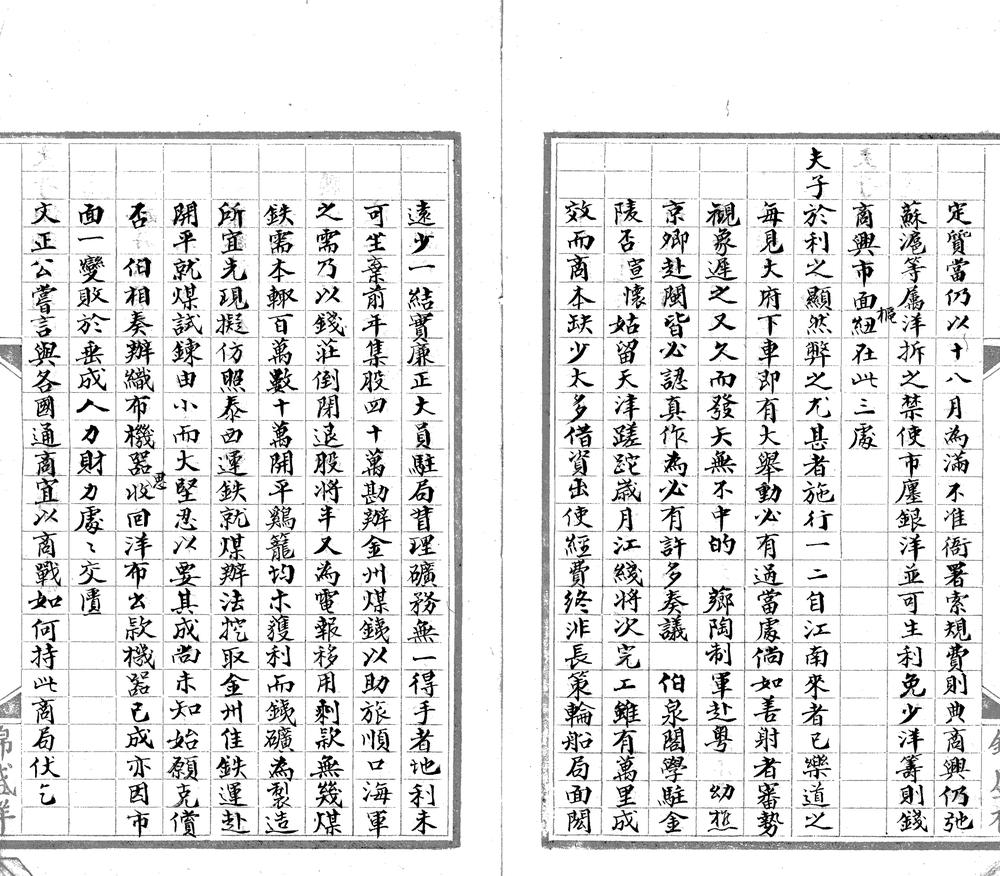 定質當仍以十八月為滿不准衙署索規費則典商興仍弛
蘇滬等屬洋拆之禁使市廛銀洋並可生利免少洋籌則錢
商興市面紐樞在此三處
夫子於利之顯然弊之尤甚者施行一二自江南來者已樂道之
每見大府下車即有大舉動必有過當處倘如善射者審勢
觀象遲之又久而發矢無不中的 薌陶制軍赴粵 幼樵
京卿赴閩皆必認真作為必有許多奏議 伯泉閣學駐金
陵否 宣懷姑留天津蹉跎歲月江綫將次完工雖有萬里成
效而商本缺少太多借資出使經費終非長策輪船局面闊
遠少一結實廉正大員駐局昔理礦務無一得手者地利未
可坐棄前年集股四十萬勘辦金州煤鐵以助旅順口海軍
之需乃以錢莊倒閉退股將半又為電報移用剩款無幾煤
鉄需本輒百萬數十萬開平鷄籠均未獲利而鐵礦為製造
所宜先現擬仿照泰西運鉄就煤辦法挖取金州佳鉄運赴
開平就煤試鍊由小而大堅忍以要其成尚未知始願克償
否 伯相奏辦織布機器思收回洋布出款機器已成亦因市
面一變敗於垂成人力財力處〻交潰
文正公嘗言與各國通商宜以商戰如何持此商局伏乞